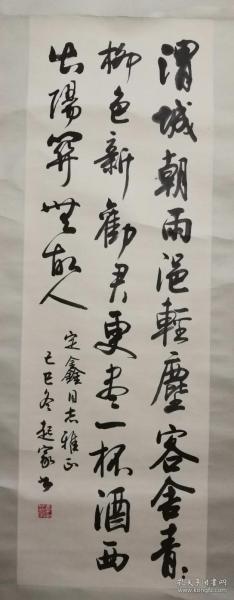 渭城朝雨浥輕塵客舍青〻
柳色新勸君更盡一杯酒西
出陽關無故人
定鑫同志雅正
己巳冬起家书